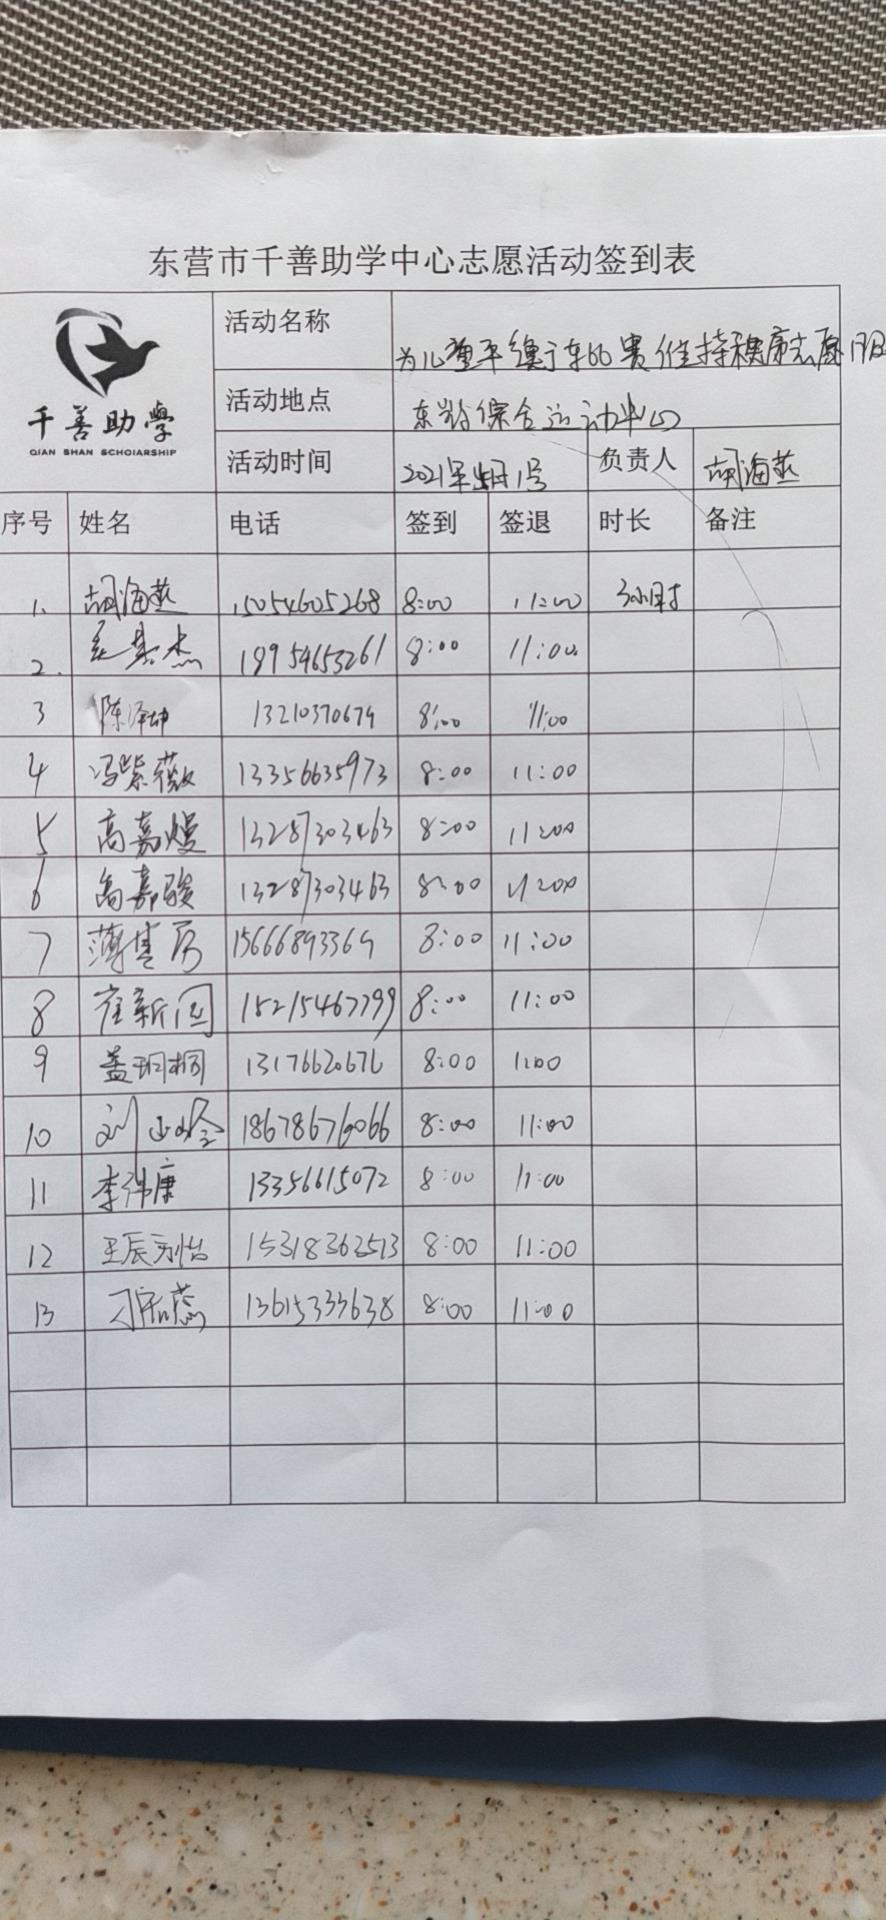 东营市千善助学中心志愿活动签到表
千善助學
QIAN SHAN SCHOlARSHIP
活动名称 为儿童平衡车比赛维持秩序志愿服
活动地点 综合运动中心
活动时间 2021年 1号 负责人 胡海燕
序号 姓名 电话 签到 签退 时长 备注
1. 胡海燕 15054605268 8:00 11:00 3小时
2. 杰 18954653261 8:00 11:00
3 陈泽坤 13210370674 8:00 11:00
4 冯紫薇 13356635973 8:00 11:00
5 高嘉熳 13287303463 8:00 11:00
6 高嘉骏 13287303463 8:00 11:00
7 薄 15666893369 8:00 11:00
8 崔新 15215467799 8:00 11:00
9 盖玥桐 1317662067 8:00 11:00
10 刘 18678676066 8:00 11:00
11 李 康 13356615072 8:00 11:00
12 王辰 怡 15318362513 8:00 11:00
13 刁 蕊 13615333638 8:00 11:00